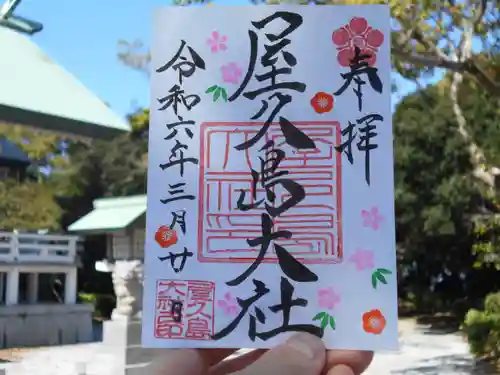 奉拝
屋久島大社
令和六年三月廿日
屋久島
大社印